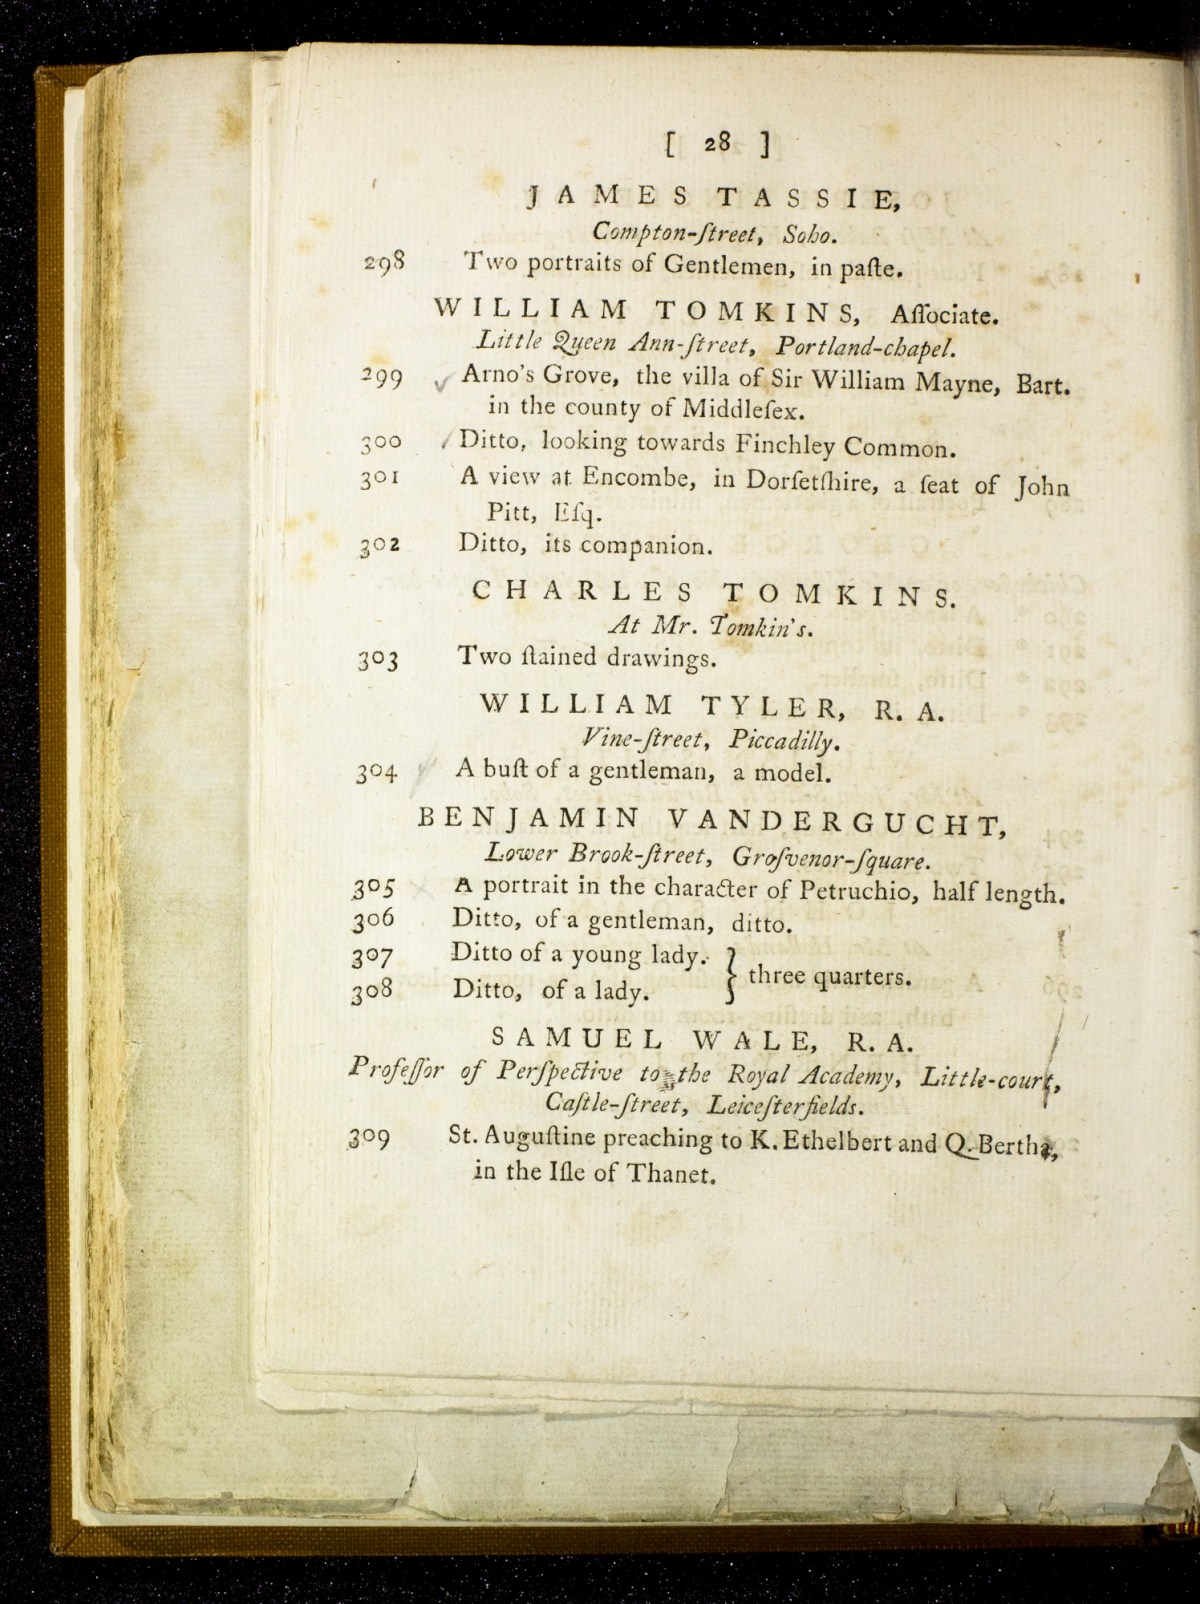 [ 28 ]
JAMES TASSIE,
Compton-ſtreet, Soho.
298 Two portraits of Gentlemen, in paſte.
WILLIAM TOMKINS, Aſſociate.
Little Queen Ann-ſtreet, Portland-chapel.
299 Arno's Grove, the villa of Sir William Mayne, Bart.
in the county of Middleſex.
300 Ditto, looking towards Finchley Common.
301 A view at Encombe, in Dorſetſhire, a ſeat of John
Pitt, Eſq.
302 Ditto, its companion.
CHARLES TOMKINS.
At Mr. Tomkin's.
303 Two ſtained drawings.
WILLIAM TYLER, R. A.
Vine-ſtreet, Piccadilly.
304 A buſt of a gentleman, a model.
BENJAMIN VANDERGUCHT,
Lower Brook-ſtreet, Groſvenor-ſquare.
305 A portrait in the character of Petruchio, half length.
306 Ditto, of a gentleman, ditto.
307 Ditto of a young lady. } three quarters.
308 Ditto, of a lady.
SAMUEL WALE, R. A.
Profeſſor of Perſpective to the Royal Academy, Little-court,
Caſtle-ſtreet, Leiceſterfields.
309 St. Auguſtine preaching to K. Ethelbert and Q. Bertha,
in the Iſle of Thanet.